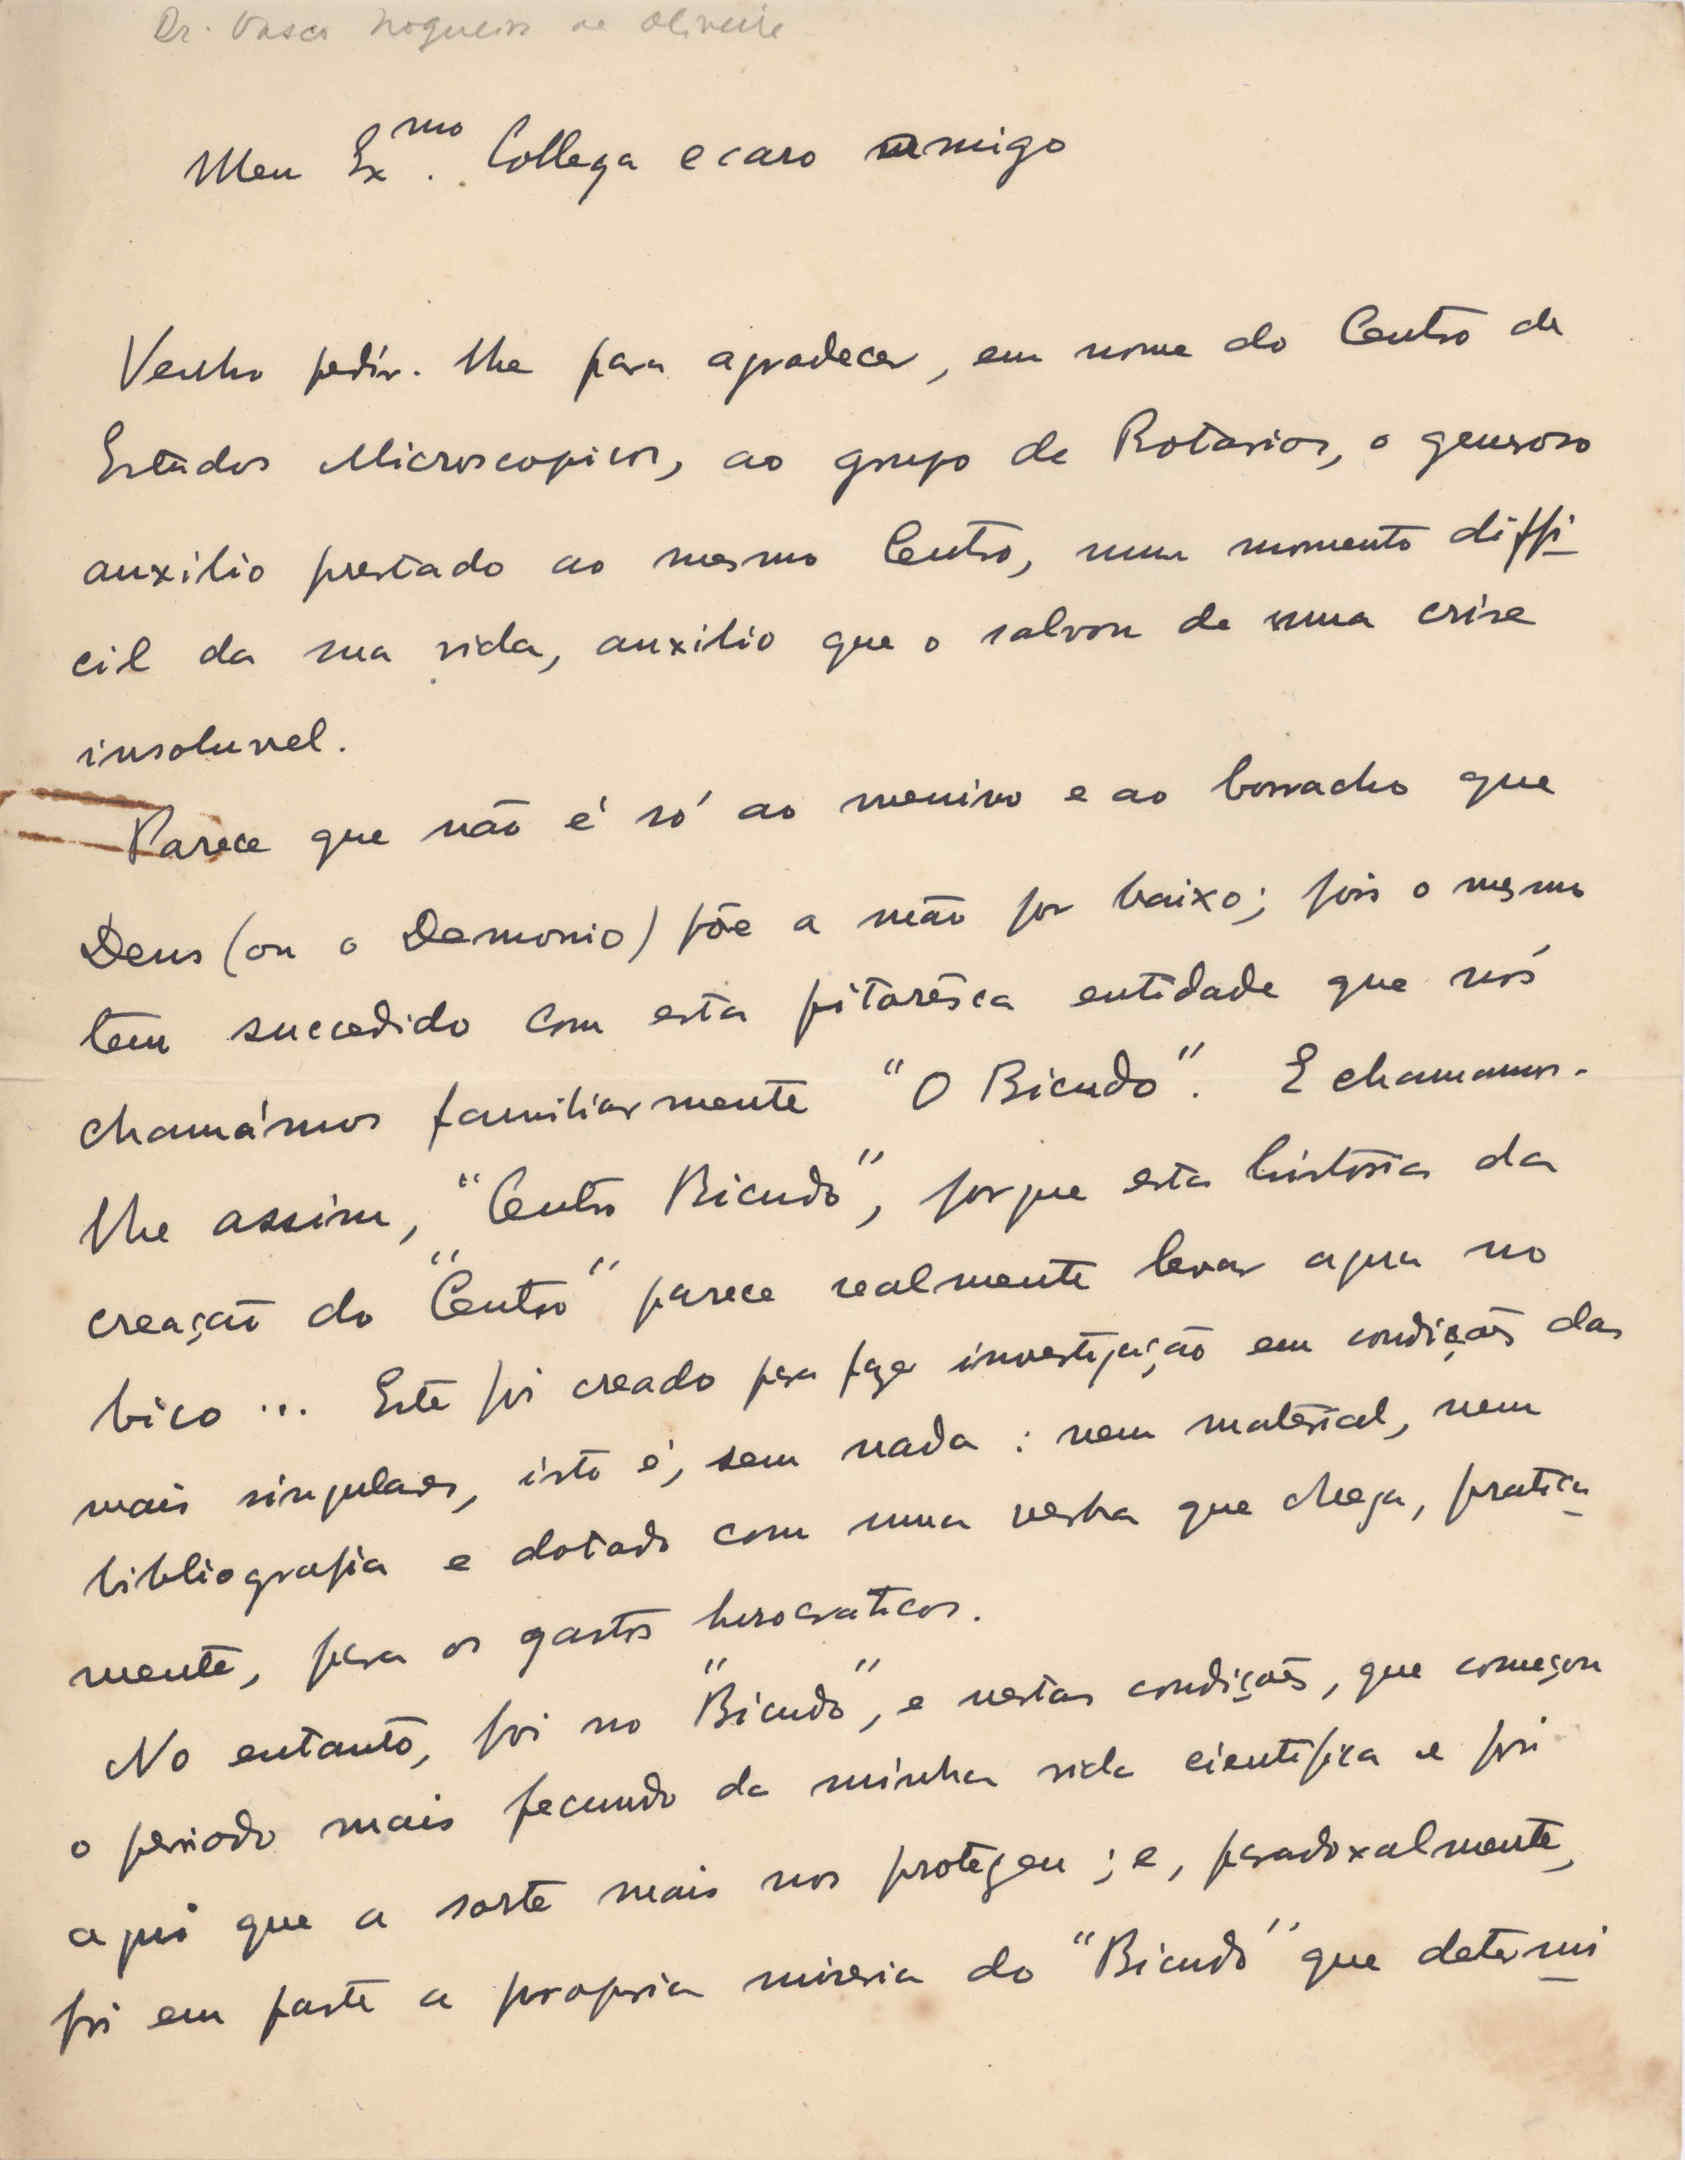 Dr. Vasco Nogueira de Oliveira
Meu Ex.mo Collega e caro amigo
Venho pedir-lhe para agradecer, em nome do Centro de
Estudos Microscopicos, ao grupo de Rotarios, o generoso
auxilio prestado ao mesmo Centro, num momento diffi-
cil da sua vida, auxilio que o salvou de uma crise
insoluvel.
Parece que não é só ao menino e ao borracho que
Deus (ou o Demonio) põe a mão por baixo; pois o mesmo
tem succedido com esta pitorêsca entidade que nós
chamámos familiarmente "O Bicudo". E chamamos-
lhe assim, "Centro Bicudo", porque esta historia da
creação do "Centro" parece realmente levar agua no
bico ... Este foi creado para fazer investigação em condições das
mais singulares, isto é, sem nada: nem material, nem
bibliografia e dotado com uma verba que chega, pratica-
mente, para os gastos burocraticos.
No entanto, foi no "Bicudo", e nestas condições, que começou
o periodo mais fecundo da minha vida cientifica e foi
aqui que a sorte mais nos protegeu; e, paradoxalmente,
foi em parte a propria miseria do "Bicudo" que determi-